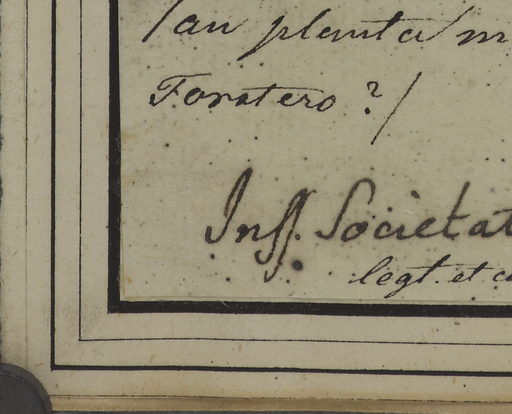 /an planta m
Forstero?/
Inss. Societat
legt. et c